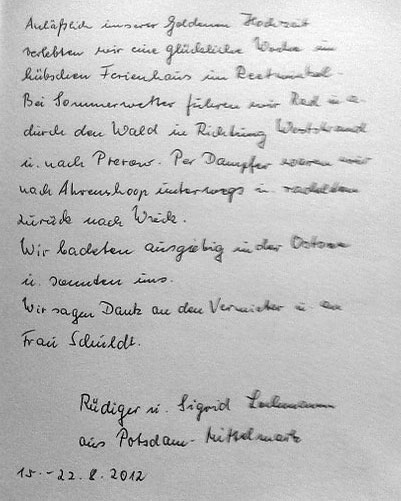 Anläßlich unserer Goldenen Hochzeit
verlebten wir eine glückliche Woche im
hübschen Ferienhaus im Reetwinkel.
Bei Sommerwetter fuhren wir Rad u. a.
durch den Wald in Richtung Weststrand
u. nach Prerow. Per Dampfer waren wir
nach Ahrenshoop unterwegs u. radelten
zurück nach Wieck.
Wir badeten ausgiebig in der Ostsee
u. sonnten uns.
Wir sagen Dank an den Vermieter u. an
Frau Schuldt.
Rüdiger u. Sigrid
aus Potsdam-Mittelmark
15.-22.8.2012